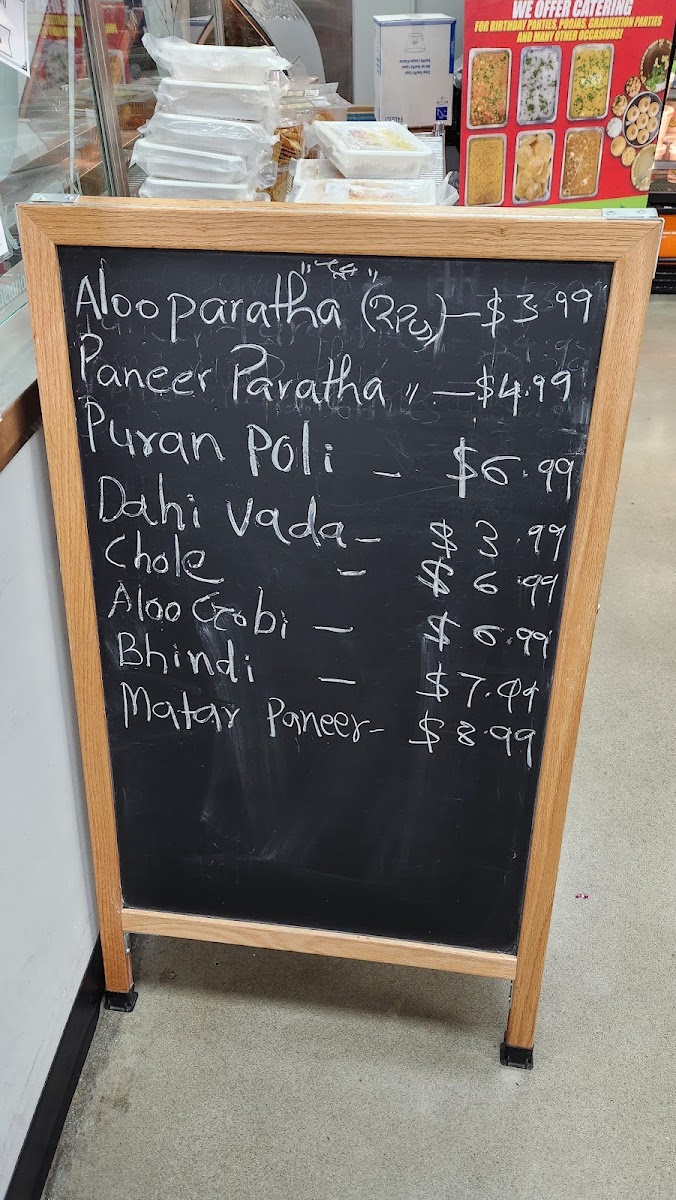 WE OFFER CATERING
FOR BIRTHDAY PARTIES, POOJAS, GRADUATION PARTIES
AND MANY OTHER OCCASIONS!
Aloo paratha (2Pcs) - $3.99
Paneer Paratha " - $4.99
Puran Poli - $6.99
Dahi Vada - $3.99
Chole - $6.99
Aloo Gobi - $6.99
Bhindi - $7.99
Matar Paneer - $8.99